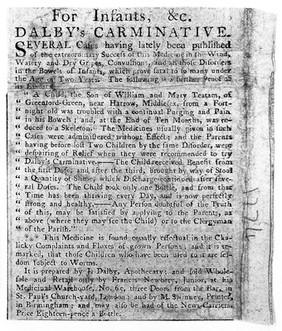 For Infants, &c.
DALBY's CARMINATIVE.
SEVERAL Cases having lately been published
of the extraordinary Success of this Medicine in the Wind,
Watery and Dry Gripes, Convulsions, and all those Disorders
in the Bowels of Infants, which prove fatal to so many under
the Age of Two Years. The following is a further Proof of
its Efficacy.
"A Child, the Son of William and Mary Teatam, of
Greenford-Green, near Harrow, Middlesex, from a Fort-
night old was troubled with a continual Purging and Pain
in his Bowels; and, at the End of Ten Months, was re-
duced to a Skeleton. The Medicines usually given in such
Cases were administered without Effect; and the Parents
having before lost Two Children by the same Disorder, were
despairing of Relief when they were recommended to try
Dalby's Carminative.—The Child received Benefit from
the first Dose, and after the third, brought by way of Stool
a Quantity of Slime; which Discharge continued after seve-
ral Doses. The Child took only one Bottle, and from that
Time has been thriving every Day, and is now perfectly
strong and healthy.—Any Person doubtful of the Truth
of this, may be satisfied by applying to the Parents, as
above (where they may see the Child) or to the Clergyman
of the Parish."
This Medicine is found equally effectual in the Cho-
licky Complaints and Fluxes of grown Persons; and it is re-
marked, that those Children who have been used to it are sel-
dom subject to Worms.
It is prepared by J. Dalby, Apothecary; and sold Whole-
sale and Retail only by Francis Newbery, Junior, at his
Medicinal Warehouse, No. 6, three Doors from the Bar, in
St. Paul's Church-yard, London; and by M. Swinney, Printer,
in Birmingham; and may also be had of the News-Carriers,
Price Eighteen-pence a Bottle.